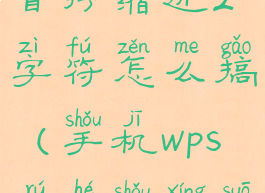 首行缩进2
zì fú zěn me gǎo
字符怎么搞
shǒu jī
(手机wps
rú hé shǒu xíng suō